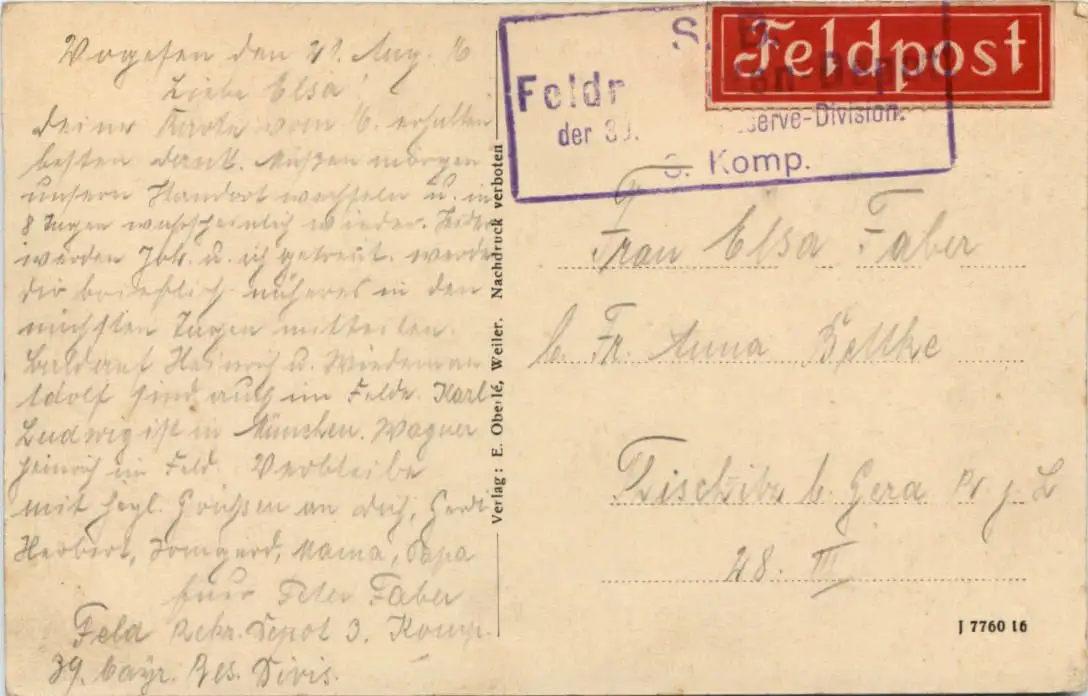 Vogesen den 21. Aug. 16
Liebe Elsa
Deine Karte vom 16. erhalten
besten Dank. Müssen morgen
unsern Standort wechseln u. in
8 Tagen wahrscheinlich wieder. Leider
werden Joh. u. ich getreut. werde
dir brieflich näheres in den
nächsten Tagen mitteilen.
Heinrich u. Wiedeman
Adolf sind auch im Felde. Karl
Ludwig ist in München. Wagner
Heinrich im Feld. Verbleibe
mit herzl. Grüßen an dich, Gerdi
Herbert, Irmgard, Mama, Papa
Euer Peter Faber
Feld Rekr. Depot 3. Komp.
39. bayr. Res. Divis.
Verlag: E. Oberlé, Weiler. Nachdruck verboten
S. B.
Feldpost
Feldr
der 39. serve-Division.
3. Komp.
Frau Elsa Faber
b. Fr. Anna Bettke
b. Gera Pr. j. L
28. III
J 7760 16